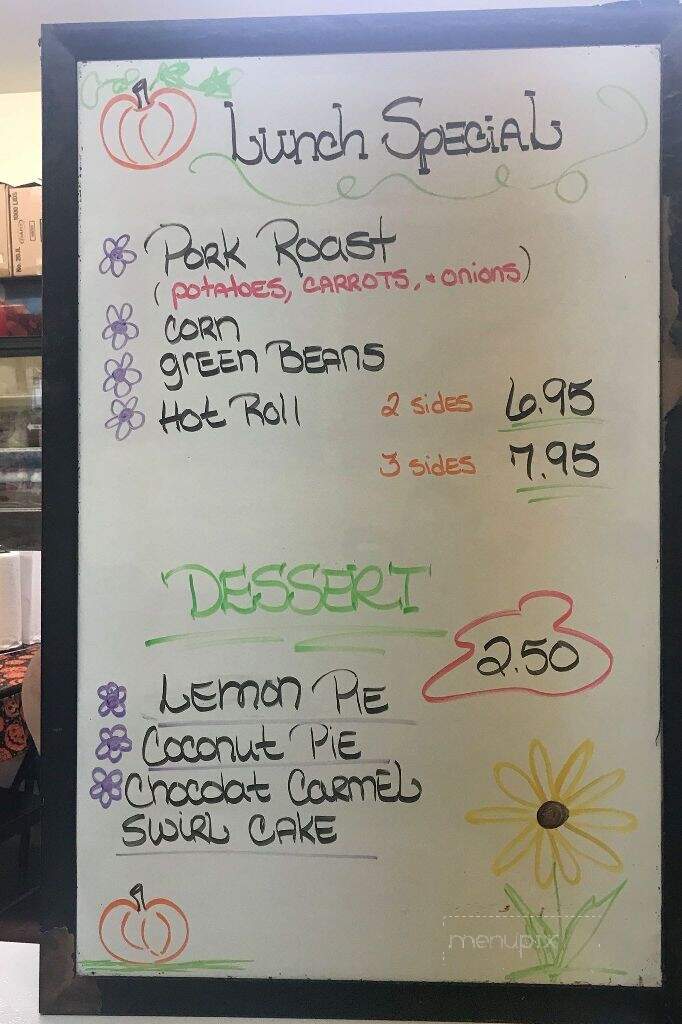 Lunch Special
Pork Roast
(potatoes, carrots, + onions)
Corn
green Beans
Hot Roll 2 sides 6.95
3 sides 7.95
DESSERT
2.50
Lemon Pie
Coconut Pie
Chocolat Carmel
Swirl Cake
menupix